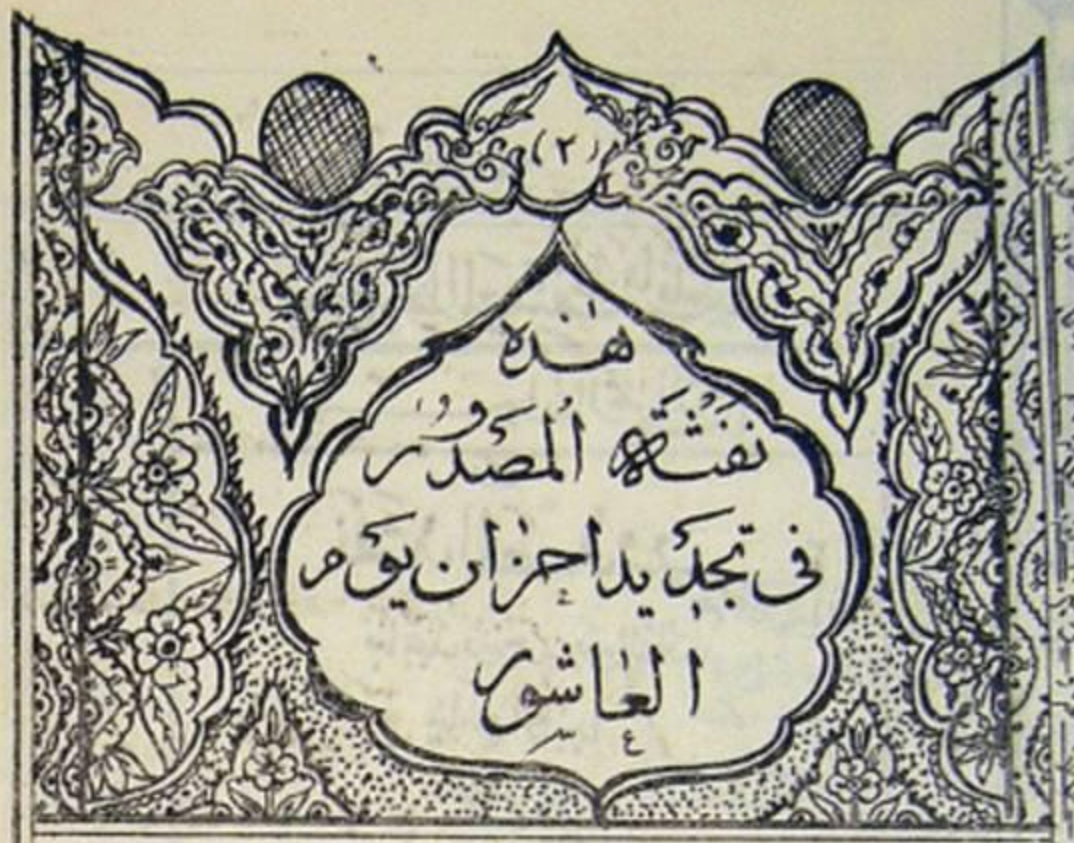 (٢)
هذه
نَفْثَةُ الْمَصْدُورِ
فى تجديد احزان يوم
العاشور